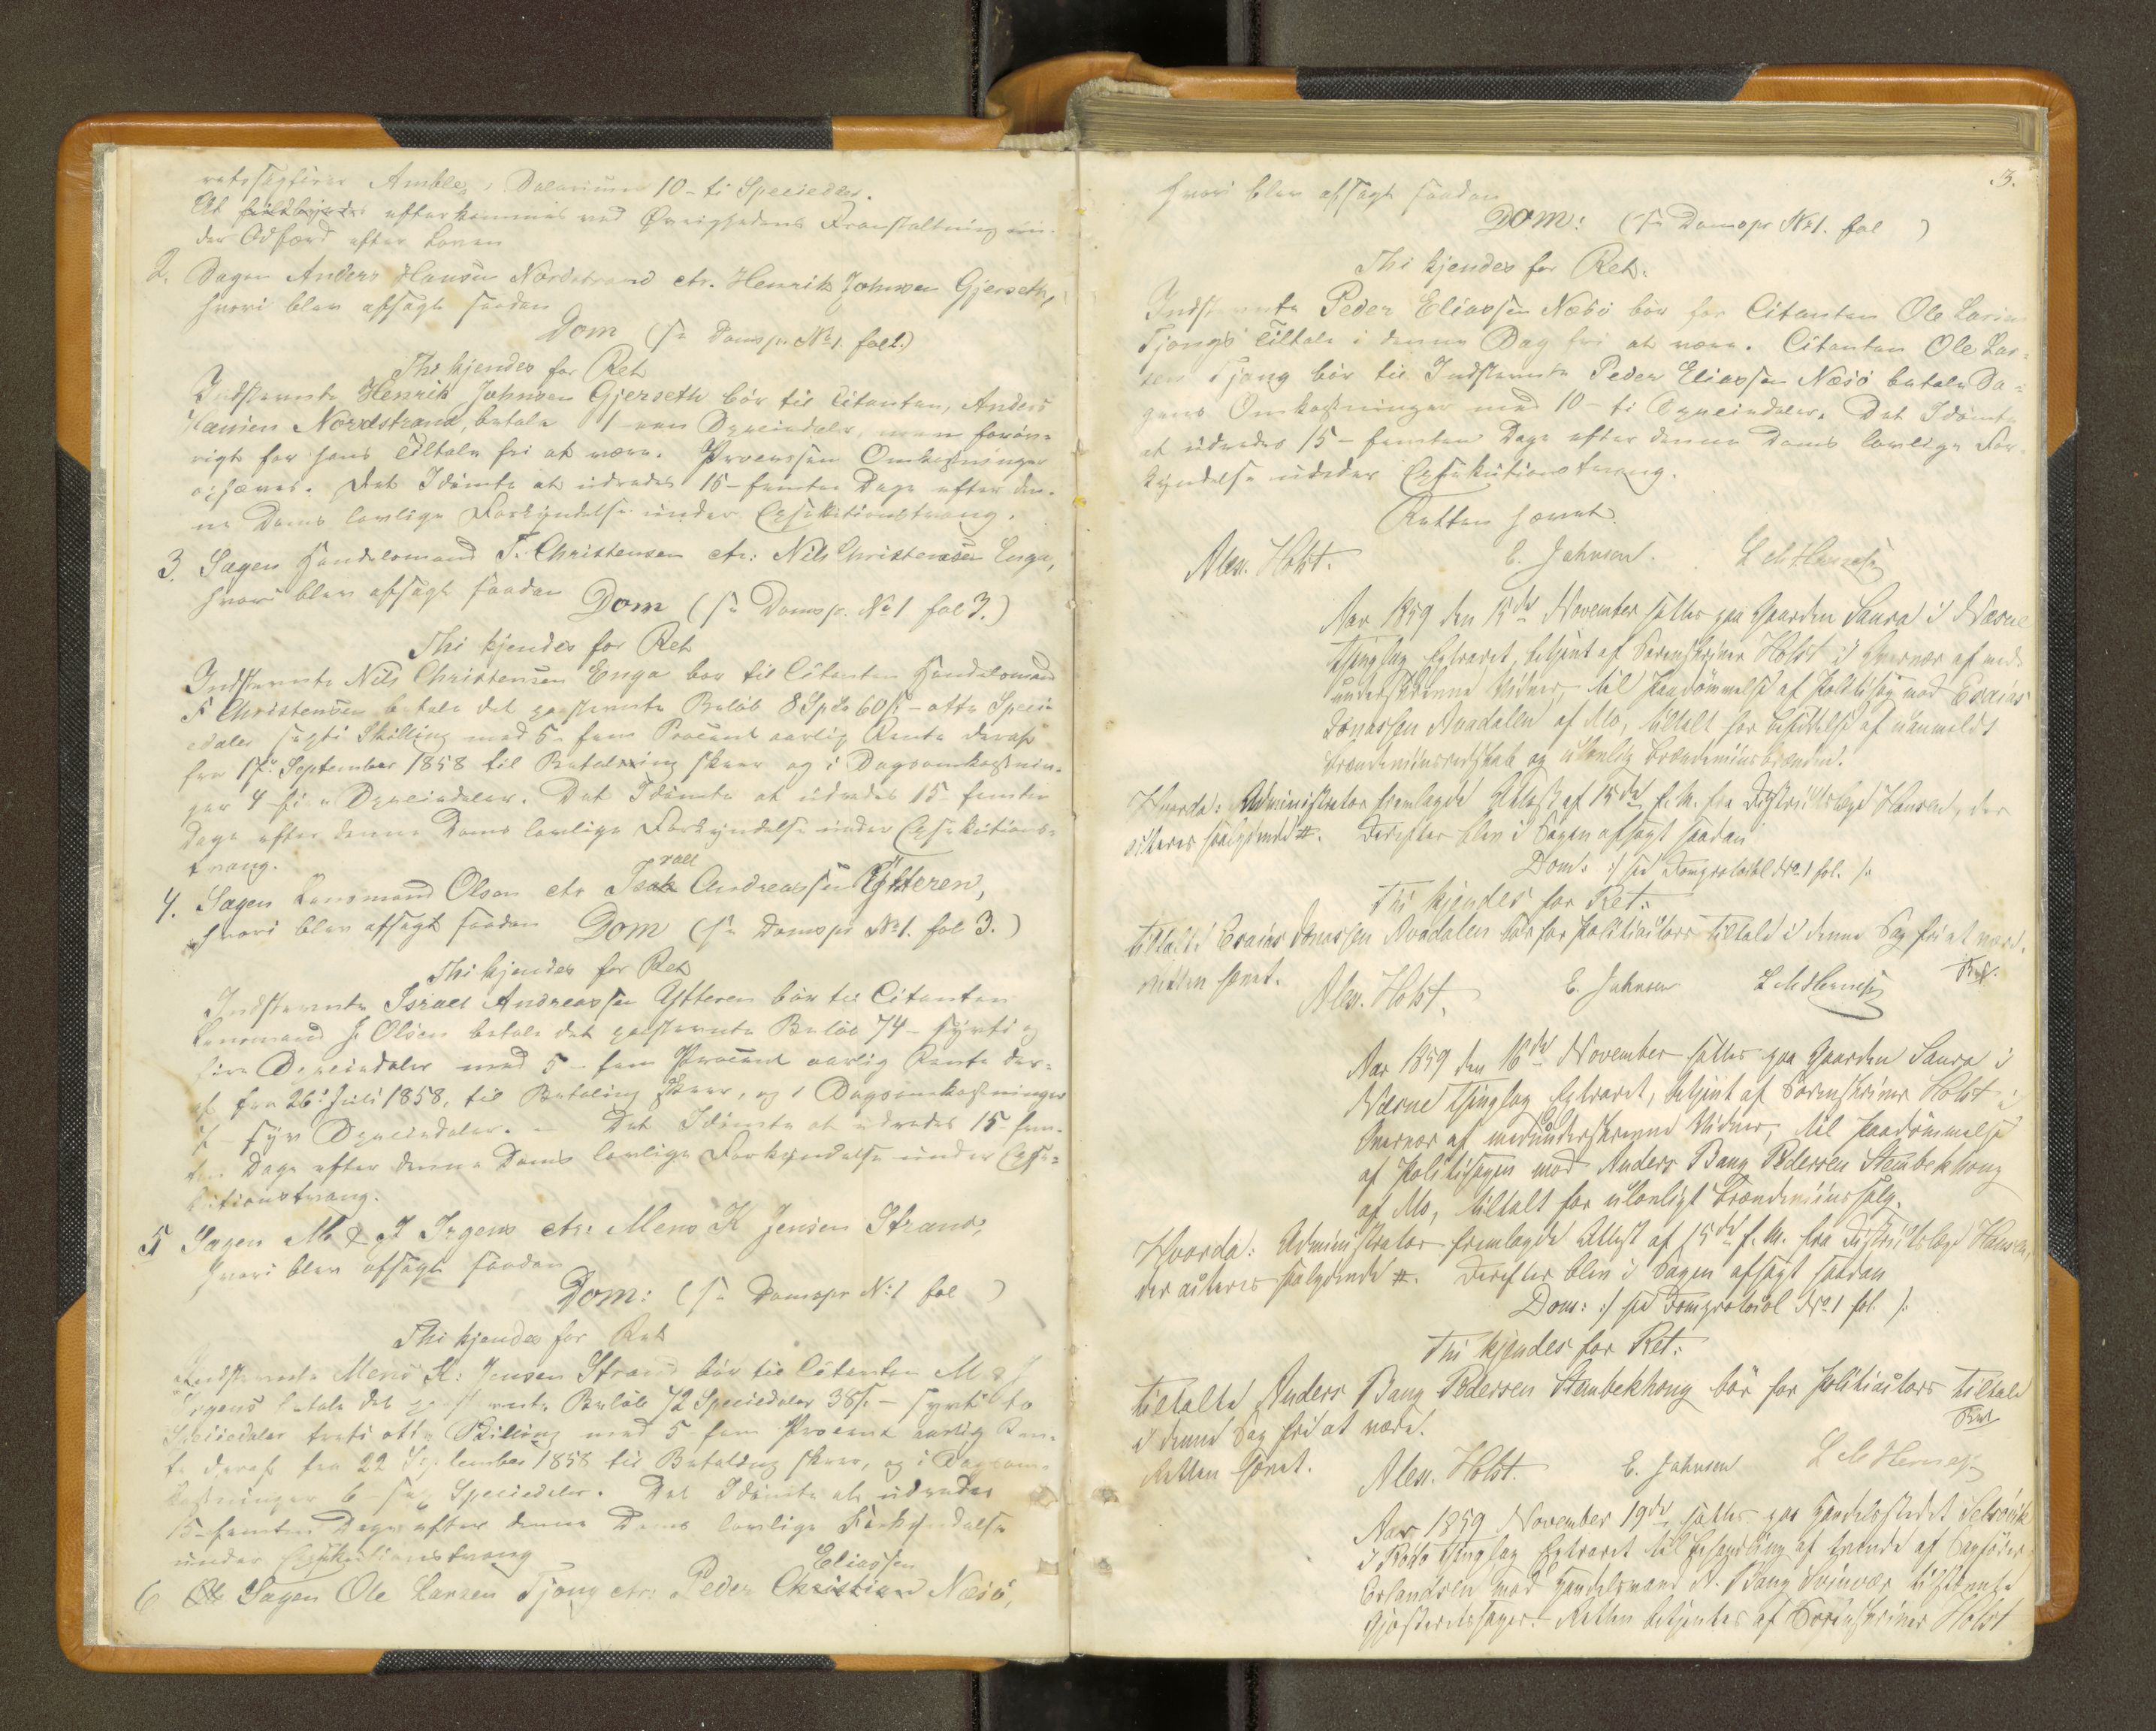 retssagfører Amble, i Salarium 10 - ti Speciedlr.
At fuldbyrdes efterkommes ved Øvrighedens Foranstaltning un-
der Adfærd efter Loven
2. Sagen Anders Hansen Nordstrand ctr. Henrik Johnsen Gjerseth,
hvori blev afsagt saadan
Dom (se Domspr. No 1. fol 2.)
Thi kjendes for Ret
Indstevnte Henrik Johnsen Gjerseth bör til Citanten, Anders
Hansen Nordstrand, betale 1 - een Speciedaler, men forøv-
rigt for hans Tiltale fri at være. Processens Omkostninger
ophæves. Det Idömte at udredes 15 - femten Dage efter den-
ne Doms lovlige Forkyndelse under Exekutionstvang.
3. Sagen Handelsmand F. Christensen ctr: Nils Christensen Enga,
hvori blev afsagt saadan
Dom (se Domspr. No 1 fol 3.)
Thi kjendes for Ret
Indstevnte Nils Christensen Enga bør til Citanten Handelsmand
F Christensen betale det paastevnte Beløb 8 Spd 60 s - otte Speci-
edaler sexti Skilling med 5 - fem Procent aarlig Rente deraf
fra 17de September 1858 til Betaling skeer og i Sagsomkostnin-
ger 4 - fire Speciedaler. Det Idömte at udredes 15 - femten
Dage efter denne Doms lovlige Forkyndelse under Exekutions-
tvang.
4. Sagen Lensmand Olsen ctr Israel Andreassen Ytteren,
hvori blev afsagt saadan Dom (se Domspr No 1. fol 3.)
Thi kjendes for Ret
Indstevnte Israel Andreassen Ytteren bör til Citanten
Lensmand J. Olsen betale det paastevnte Belöb 74 - syvti og
fire Speciedaler med 5 - fem Procent aarlig Rente der-
af fra 26de Juli 1858, til Betaling skeer, og i Sagsomkostninger
7 - syv Speciedaler. - Det Idömte at udredes 15 - fem-
ten Dage efter denne Doms lovlige Forkyndelse under Exe-
kutionstvang.
5 Sagen M & J Irgens ctr: Mens K Jensen Strand,
hvori blev afsagt saadan
Dom: (se Domspr No: 1 fol )
Thi kjendes for Ret
Indstevnte Mens K: Jensen Strand bör til Citanten M & J
Irgens betale det paastevnte Belöb 72 Speciedaler 38 s. - syvti to
Speciedaler treti otte Skilling med 5 - fem Procent aarlig Ren-
te deraf fra 22 September 1858 til Betaling skeer, og i Sagsom-
kostninger 6 - sex Speciedaler. Det Idömte at udredes
15 - femten Dage efter denne Doms lovlige Forkyndelse
under Exekutionstvang
6 Sagen Ole Larsen Tjong ctr: Peder Christian Eliassen Næsö,
3.
hvori blev afsagt saadan
Dom: (se Domspr No 1. fol )
Thi kjendes for Ret.
Indstevnte Peder Eliassen Næsö bör for Citanten Ole Larsen
Tjongs Tiltale i denne Sag fri at være. Citanten Ole Lar-
sen Tjong bör til Indstevnte Peder Eliassen Næsö betale Sa-
gens Omkostninger med 10 - ti Speciedaler. Det Idömte
at udredes 15 - femten Dage efter denne Doms lovlige For-
kyndelse under Exekutionstvang.
Retten hævet.
Alex. Holst. E. Johnsen.
Aar 1859 den 15de November sattes paa Gaarden Saura i Næsne
Thinglag Extraret, betjent af Sorenskriver Holst i Overvær af med-
underskrevne Vidner, til Paadömmelse af Politisag mod Esaias
Jonassen Avadalen af Mo, tiltalt for Besiddelse af uanmeldt
Brændeviinsredskab og ulovlig Brændeviinsbrænden.
Hvorda: Administrator fremlagde Attest af 15de f. M. fra Districtslæge Hansen, der
akteres saalydende #. Derefter blev i Sagen afsagt saadan
Dom: :/ see Domprotocol No 1 fol. /:
Thi kjendes for Ret:
Tiltalte Esaias Jonassen Avadalen bör for Politiactors Tiltale i denne Sag fri at være.
Retten hævet.
Alex. Holst. E. Johnsen
Aar 1859 den 16de November sattes paa Gaarden Saura i
Næsne Thinglag Extraret, betjent af Sorenskriver Holst i
Overvær af medunderskrevne Vidner, til Paadömmelse
af Politisagen mod Anders Bang Pedersen Stenbekhong
af Mo, tiltalt for ulovligt Brændeviinssalg.
Hvorda: Administrator fremlagde Attest af 15de f. M. fra Districtslæge Hansen,
der akteres saalydende #. Derefter blev i Sagen afsagt saadan
Dom: :/ see Domprotocol No 1 fol. /:
Thi kjendes for Ret:
Tiltalte Anders Bang Pedersen Stenbekhong bör for Politiactors Tiltale
i denne Sag fri at være.
Retten hævet.
Alex. Holst. E. Johnsen
Aar 1859 November 19de sattes paa Handelsstedet Selsövik
i Rödö Thinglag Extraret til Behandling af tvende af Sagförer
Erlandsen mod Handelsmand A. Bang Svinvær tilstevnte
Gjæsteretssager. Retten betjentes af Sorenskriver Holst